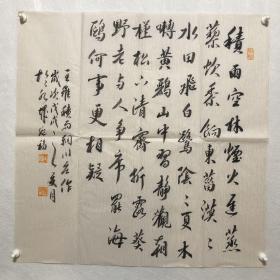 積雨空林煙火遲蒸
藜炊黍餉東菑漠〻
水田飛白鷺陰〻夏木
囀黃鸝山中習靜觀朝
槿松下清齋折露葵
野老与人爭席罷海
鷗何事更相疑
王維積雨輞川庄作
歲次戊戌之夏月